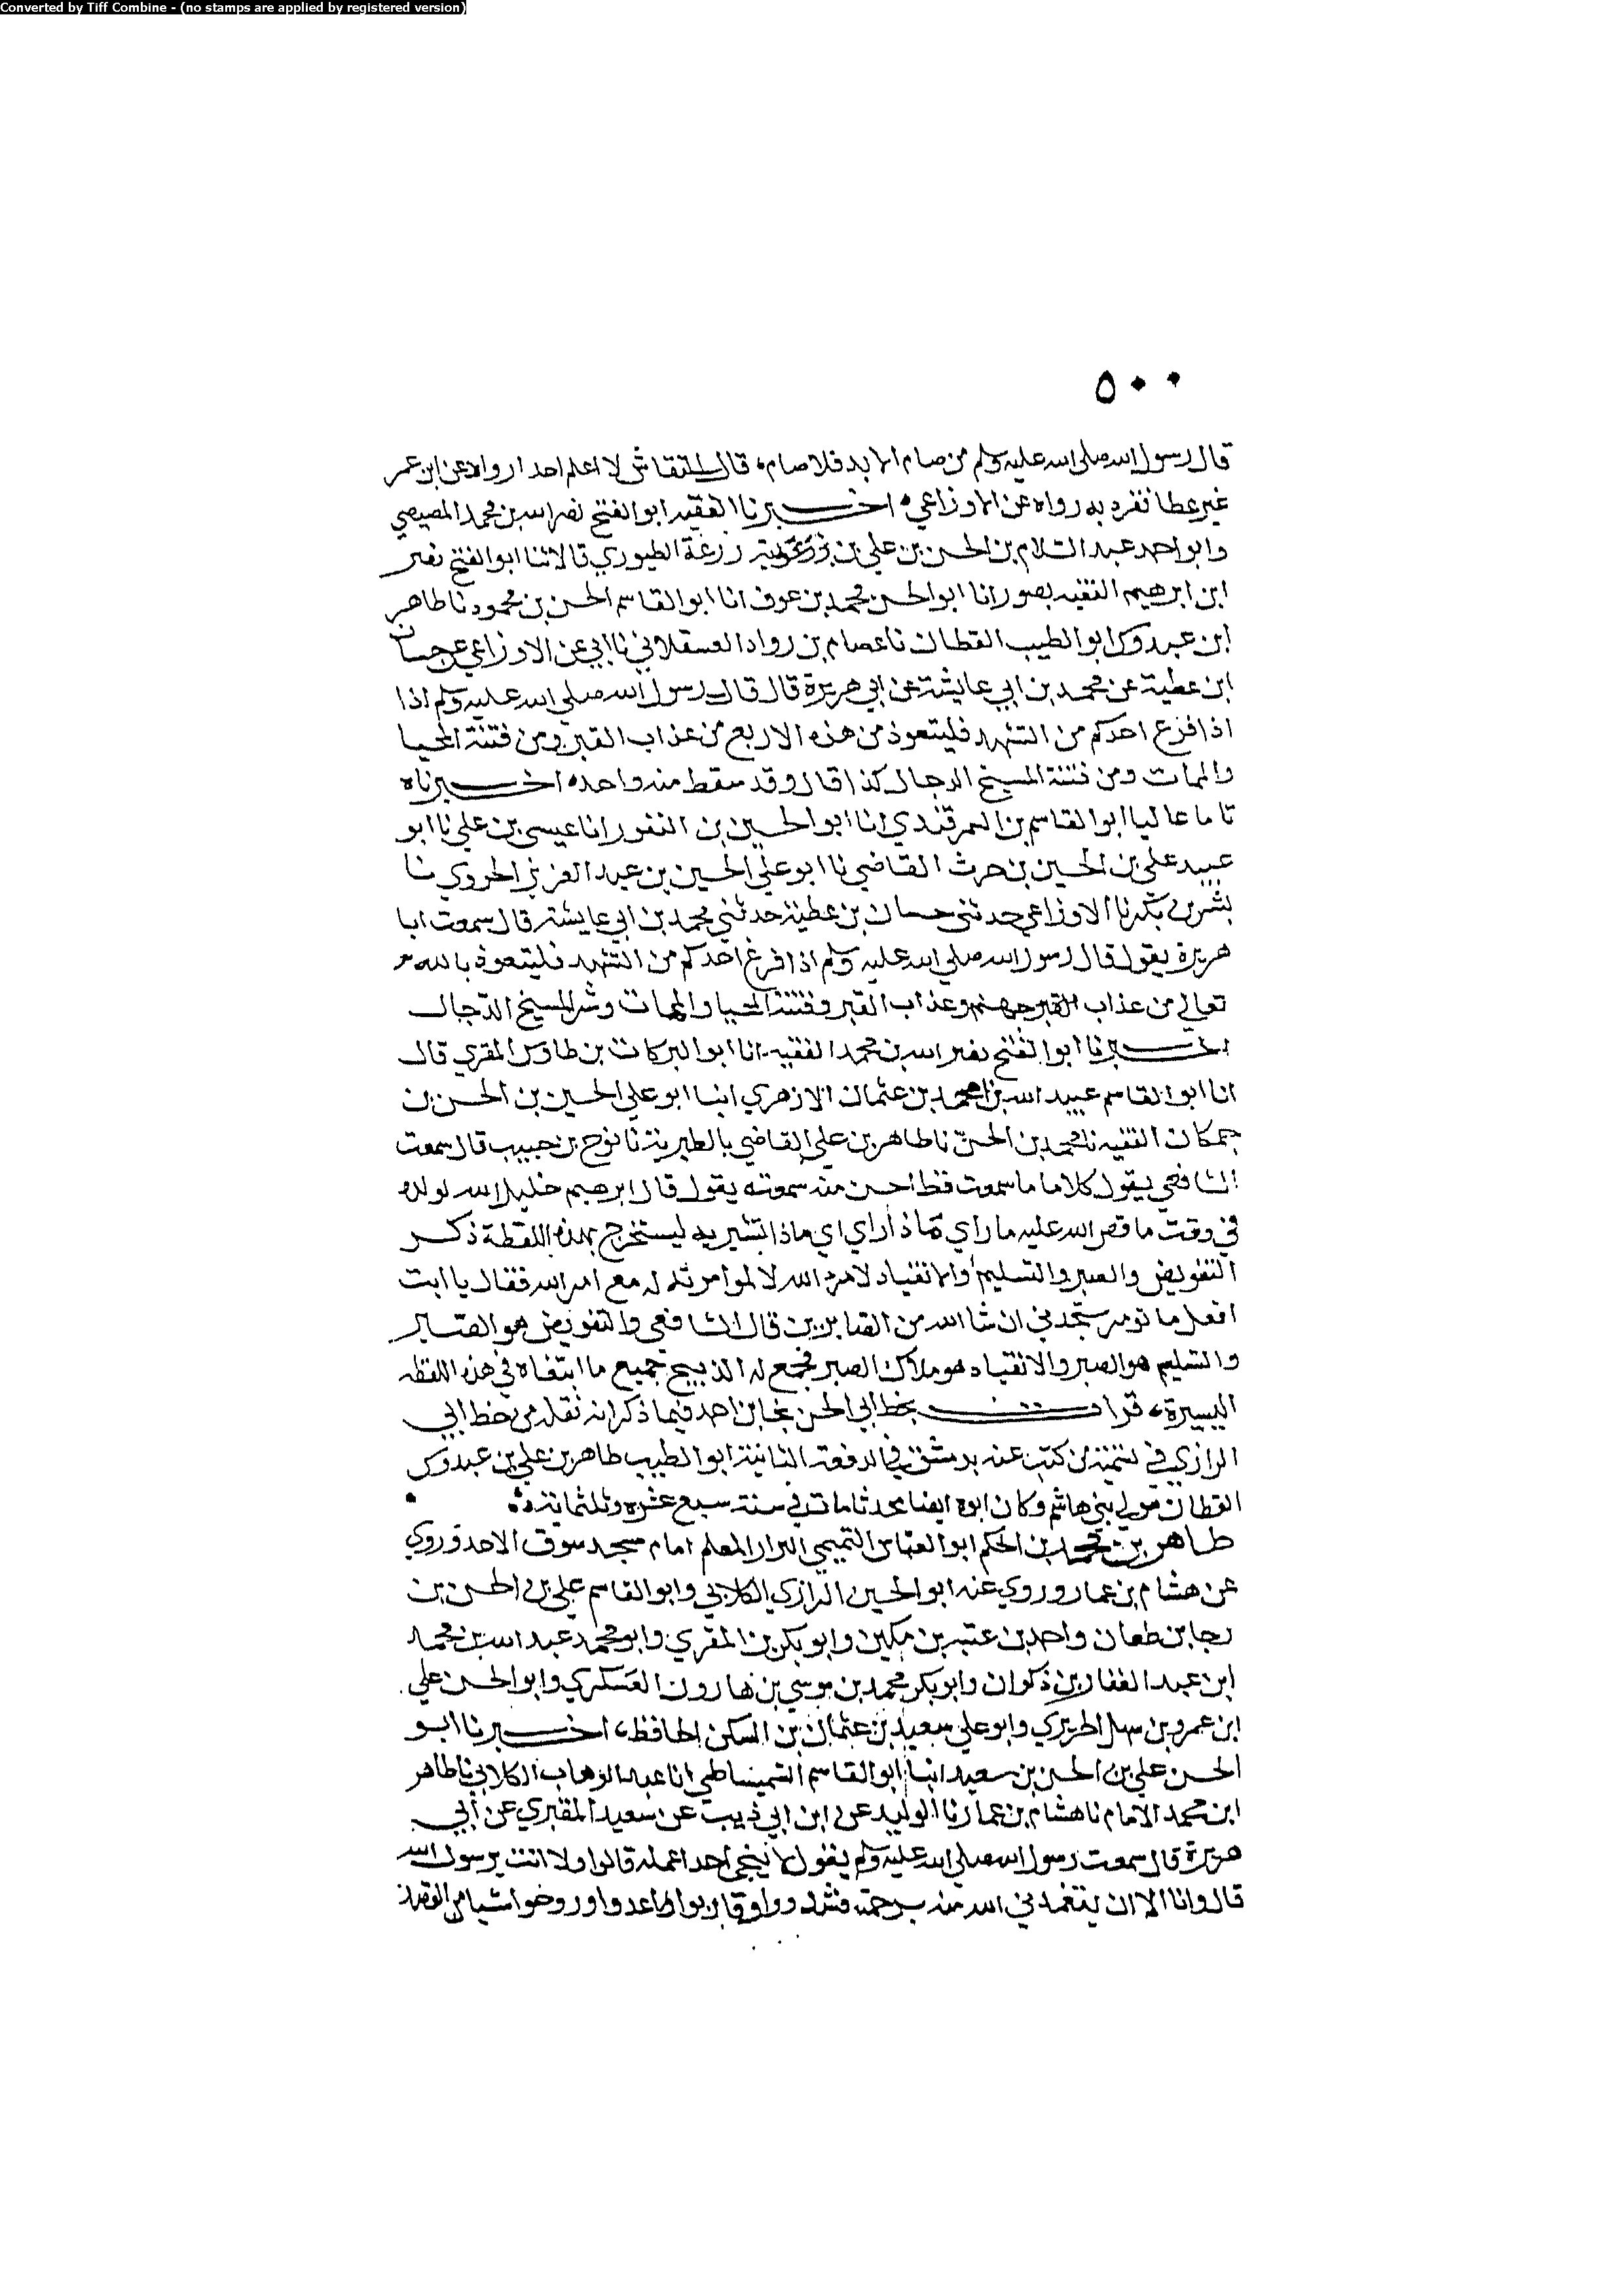 Converted by Tiff Combine - (no stamps are applied by registered version)
٥٠٠
قال رسول الله صلى الله عليه وسلم من صام الابد فلا صام، قال النقاش لا اعلم احدا رواه عن ابن عمر
غير عطا تفرد به رواه عن الاوزاعي اخبرنا الفقيه ابو الفتح نصر الله بن محمد المصيصي
وابو احمد عبد السلام بن الحسن بن علي بن زرعة الطيوري قالا ثنا ابو الفتح نصر
ابن ابرهيم الفقيه بصور انا ابو الحسن محمد بن عوف انا ابو القاسم الحسن بن محمود نا طاهر
ابن عبدوس ابو الطيب القطان نا عصام بن رواد العسقلاني نا ابي عن الاوزاعي عن حسان
ابن عطية عن محمد بن ابي عايشة عن ابي هريرة قال قال رسول الله صلى الله عليه وسلم اذا
اذا فزع احدكم من التشهد فليتعوذ من هذه الاربع من عذاب القبر ومن فتنة المحيا
والممات ومن فتنة المسيخ الدجال كذا قال وقد سقط منه واحده اخبرناه
تاما عاليا ابو القاسم بن السمرقندي انا ابو الحسين بن النقور انا عيسى بن علي نا ابو
عبيد علي بن الحسين بن حرث القاضي نا ابو علي الحسين بن عبد العزيز الجروي نا
بشر بن بكر نا الاوزاعي حدثني حسان بن عطية حدثني محمد بن ابي عايشة قال سمعت ابا
هريرة يقول قال رسول الله صلى الله عليه وسلم اذا فرغ احدكم من التشهد فليتعوذ بالله
تعالي من عذاب جهنم وعذاب القبر وفتنة المحيا والممات وشر المسيخ الدجال
اخبرنا ابو الفتح نصر الله بن محمد الفقيه انا ابو البركات بن طاوس المقري قال
انا ابو القاسم عبيد الله بن احمد بن عثمان الازهري انبا ابو علي الحسين بن الحسن بن
حمكان الفقيه نا محمد بن الحسن نا طاهر بن علي القاضي بالطبرية نا نوح بن حبيب قال سمعت
الشافعي يقول كلاما ما سمعت قط احسن منه سمعته يقول قال ابرهيم خليل الله لولده
في وقت ما قص الله عليه ما راي ماذا اراي اي ماذا تشير به ليستخرج بهذه اللفظة ذكر
التفويض والصبر والتسليم والانقياد لامر الله لا لموامرته له مع امر الله فقال يا ابت
افعل ما تومر ستجدني ان شا الله من الصابرين قال الشافعي والتفويض هو الصبر
والتسليم هو الصبر والانقياد هو ملاك الصبر فجمع له الذبيح جميع ما ابتغاه في هذه اللفظه
اليسيرة، قرات بخط ابي الحسن نجا بن احمد فيما ذكر انه نقله من خط ابي
الرازي في تسمية من كتب عنه بدمشق في الدفعة الثانية ابو الطيب طاهر بن علي بن عبدوس
القطان مولي بني هاشم وكان ابوه ايضا محدثا مات في سنة سبع عشره وثلثمائة
طاهر بن محمد بن الحكم ابو العباس التميمي البزار المعلم امام مسجد سوق الاحد وروي
عن هشام بن عمار وروي عنه ابو الحسين الرازي الكلابي وابو القاسم علي بن الحسن بن
رجا بن طعان واحمد بن عتبه بن مكين وابو بكر بن المقري وابو محمد عبد الله بن محمد
ابن عبد الغفار بن ذكوان وابو بكر محمد بن موسي بن هارون العسكري وابو الحسن علي
ابن عمرو بن سهل الحريري وابو علي سعيد بن عثمان بن السكن الحافظ، اخبرنا ابو
الحسن علي بن الحسن بن سعيد انبا ابو القاسم الشميساطي انا عبد الوهاب الكلابي نا طاهر
ابن محمد الامام نا هشام بن عمار نا الوليد عن ابن ابي ذيب عن سعيد المقبري عن ابي
هريرة قال سمعت رسول الله صلى الله عليه وسلم يقول لا ينجي احدا عمله قالوا ولا انت يرسول الله
قال وانا الا ان يتغمدني الله منه برحمة فسددوا وقاربوا واغدوا وروحوا شيا من القصد